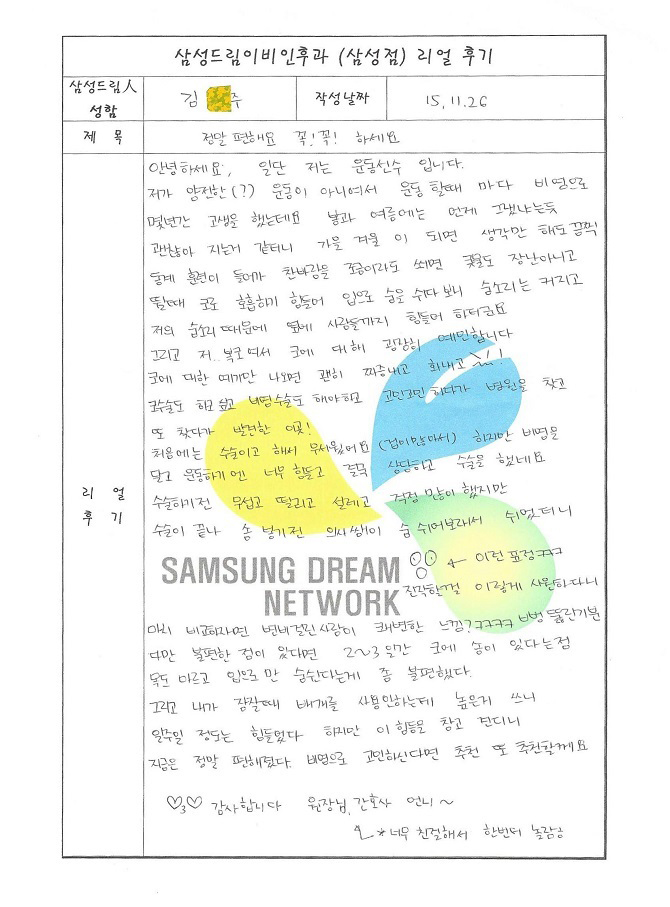 삼성드림이비인후과 (삼성점) 리얼 후기
삼성드림人 성함
김 주
작성날짜
15, 11. 26
제 목
정말 편해요 꼭! 꼭! 하세요
리 얼
후 기
안녕하세요, 일단 저는 운동선수 입니다.
저가 얌전한(?) 운동이 아니여서 운동 할때 마다 비염으로
몇년간 고생을 했는데요 봄과 여름에는 언제 그랬냐는듯
괜찮아 지는거 같더니 가을 겨울 이 되면 생각만 해도 끔찍
동계 훈련이 들어가 찬바람을 조금이라도 쐬면 콧물도 장난아니고
뛸때 코로 호흡하기 힘들어 입으로 숨을 쉬다 보니 숨소리는 커지고
저의 숨소리 때문에 옆에 사람들까지 힘들어 하더군요
그리고 저.. 복코여서 코에 대해 굉장히 예민합니다
코에 대한 얘기만 나오면 괜히 짜증내고 화내고 !!
코수술도 하고 싶고 비염수술도 해야하고 고민고민 하다가 병원을 찾고
또 찾다가 발견한 이곳!
처음에는 수술이고 해서 무서웠어요 (겁이많아서) 하지만 비염을
달고 운동하기엔 너무 힘들고 결국 상담하고 수술을 했네요
수술하기전 무섭고 떨리고 설레고 걱정 많이 했지만
수술이 끝나 솜 넣기전 의사쌤이 숨 쉬어보라해서 쉬었더니
← 이런 표정ㅋㅋㅋ
SAMSUNG DREAM
NETWORK
진작할껄 이렇게 시원하다니
마치 비교하자면 변비걸린사람이 쾌변한 느낌?ㅋㅋㅋㅋ 뻥 뚫린기분
다만 불편한 점이 있다면 2~3일간 코에 솜이 있다는점
목도 마르고 입으로 만 숨쉰다는게 좀 불편했다.
그리고 내가 잠잘때 베개를 사용안하는데 높은거 쓰니
일주일 정도는 힘들었다 하지만 이 힘듬을 참고 견디니
지금은 정말 편해졌다. 비염으로 고민하신다면 추천 또 추천할께요
♡3♡ 감사합니다 원장님, 간호사 언니 ~
*너무 친절해서 한번더 놀람